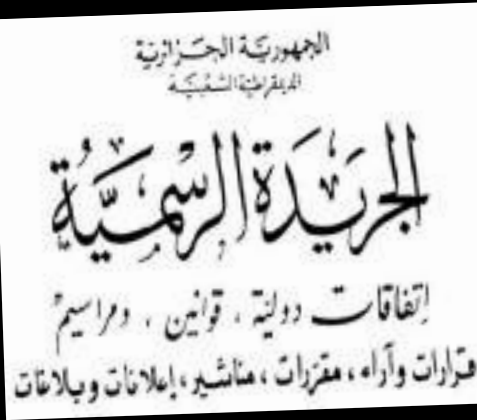 الجمهورية الجزائرية
الديمقراطية الشعبية
الجريدة الرسمية
إتفاقات دولية ، قوانين ، ومراسيم
قرارات وآراء ، مقررات ، مناشير ، إعلانات وبلاغات